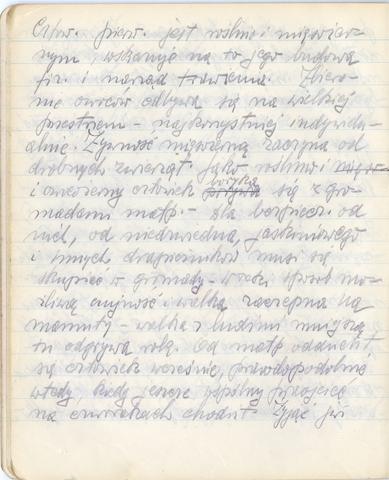 Człow. pierw. jest roślino i mięsożer-
nym, wskazuje na to jego budowa
fiz. i narząd trawienia. Zbiera-
nie owoców odbywa się na wielkiej
przestrzeni - najkorzystniej indywidu-
alnie. Żywność mięsożerną zaczyna od
drobnych zwierząt. Jako roślino i
i owocożerny człowiek boryka się z gro-
madami małp. - Dla bezpiecz. od
nich, od niedźwiedzia, jaskiniowego
i innych drapieżników musi się
skupiać w gromady - w ten sposób mo-
żliwą czujność i walka zaczepna na
mamuty - walka z ludźmi mniejszą
tu odgrywa rolę. Od małp oddzielił
się człowiek wcześnie, prawdopodobnie
wtedy, kiedy jeszcze wspólny przodek
na czworakach chodził. Żyjąc już